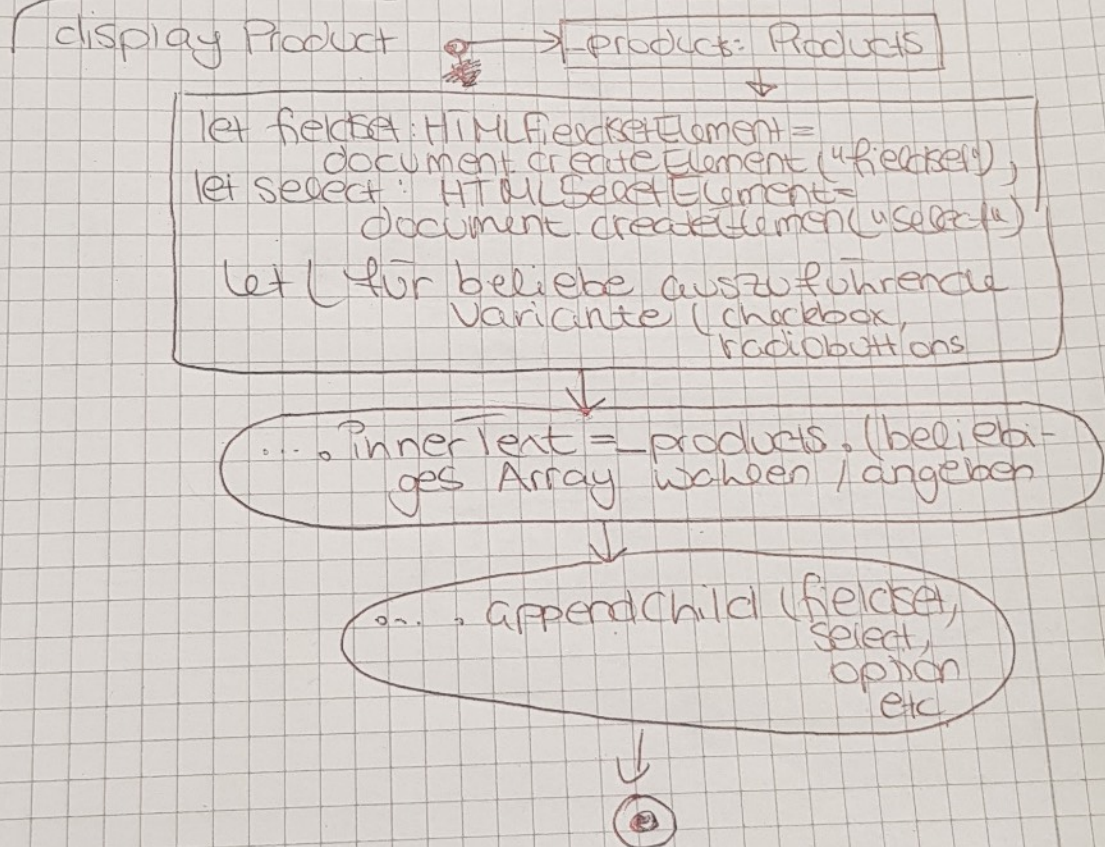 display Product
_product: Products
let fieldset: HTMLFieldsetElement=
document.createElement("fieldset"),
let select: HTMLSelectElement=
document.createElemen("select")
let ( für beliebe auszuführende
Variante (checkbox,
radiobuttons
.... . innerText = _products. (beliebi-
ges Array wählen / angeben
.... . appendChild (fieldset,
select,
option
etc